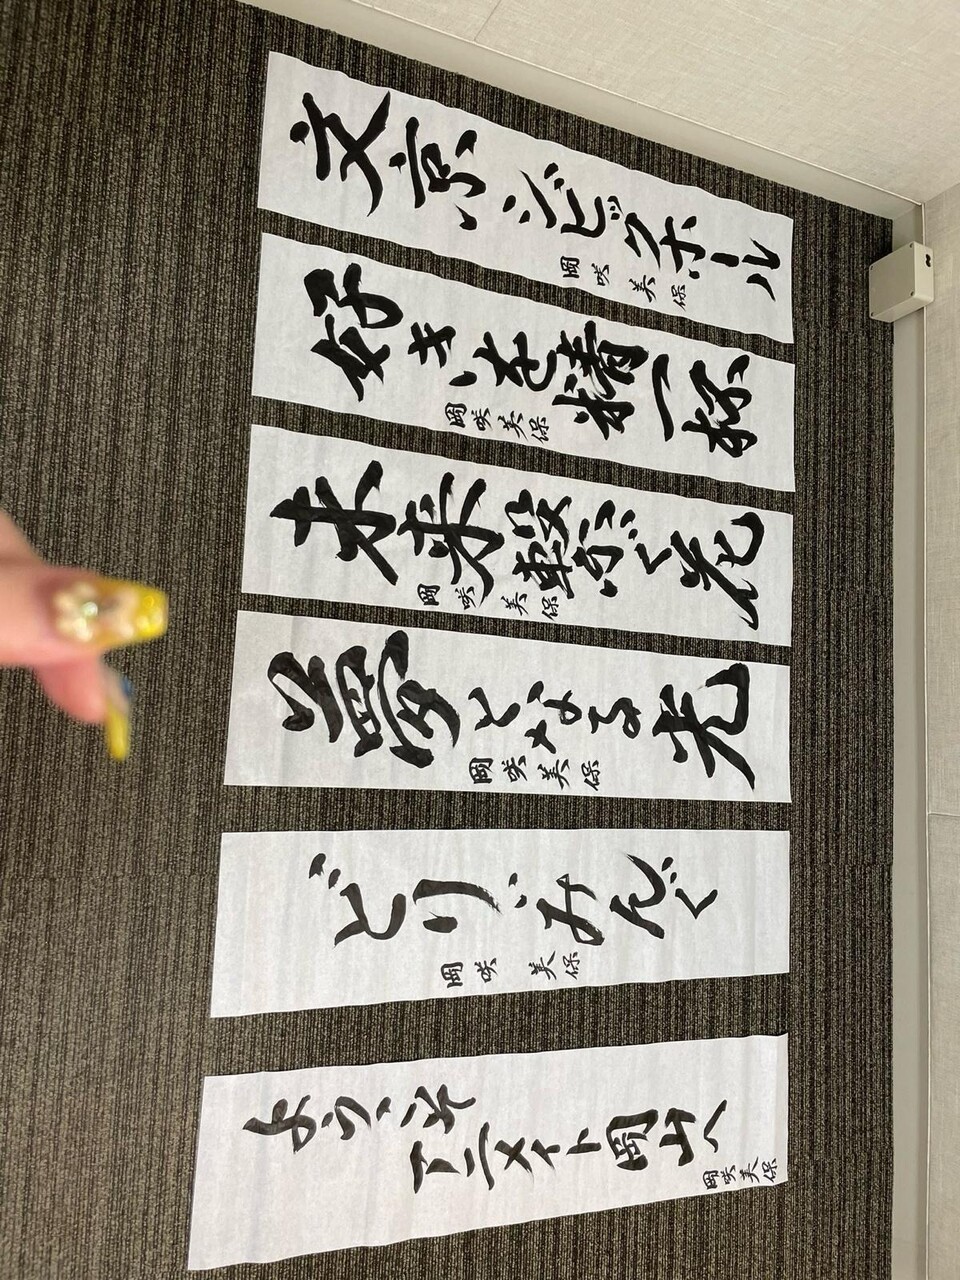 文京シビックホール
岡咲美保
好きを精一杯
岡咲美保
未来繋ぐ光
岡咲美保
夢となる光
岡咲美保
どりぃみんぐ
岡咲美保
ようこそ
アニメイト岡山へ
岡咲美保